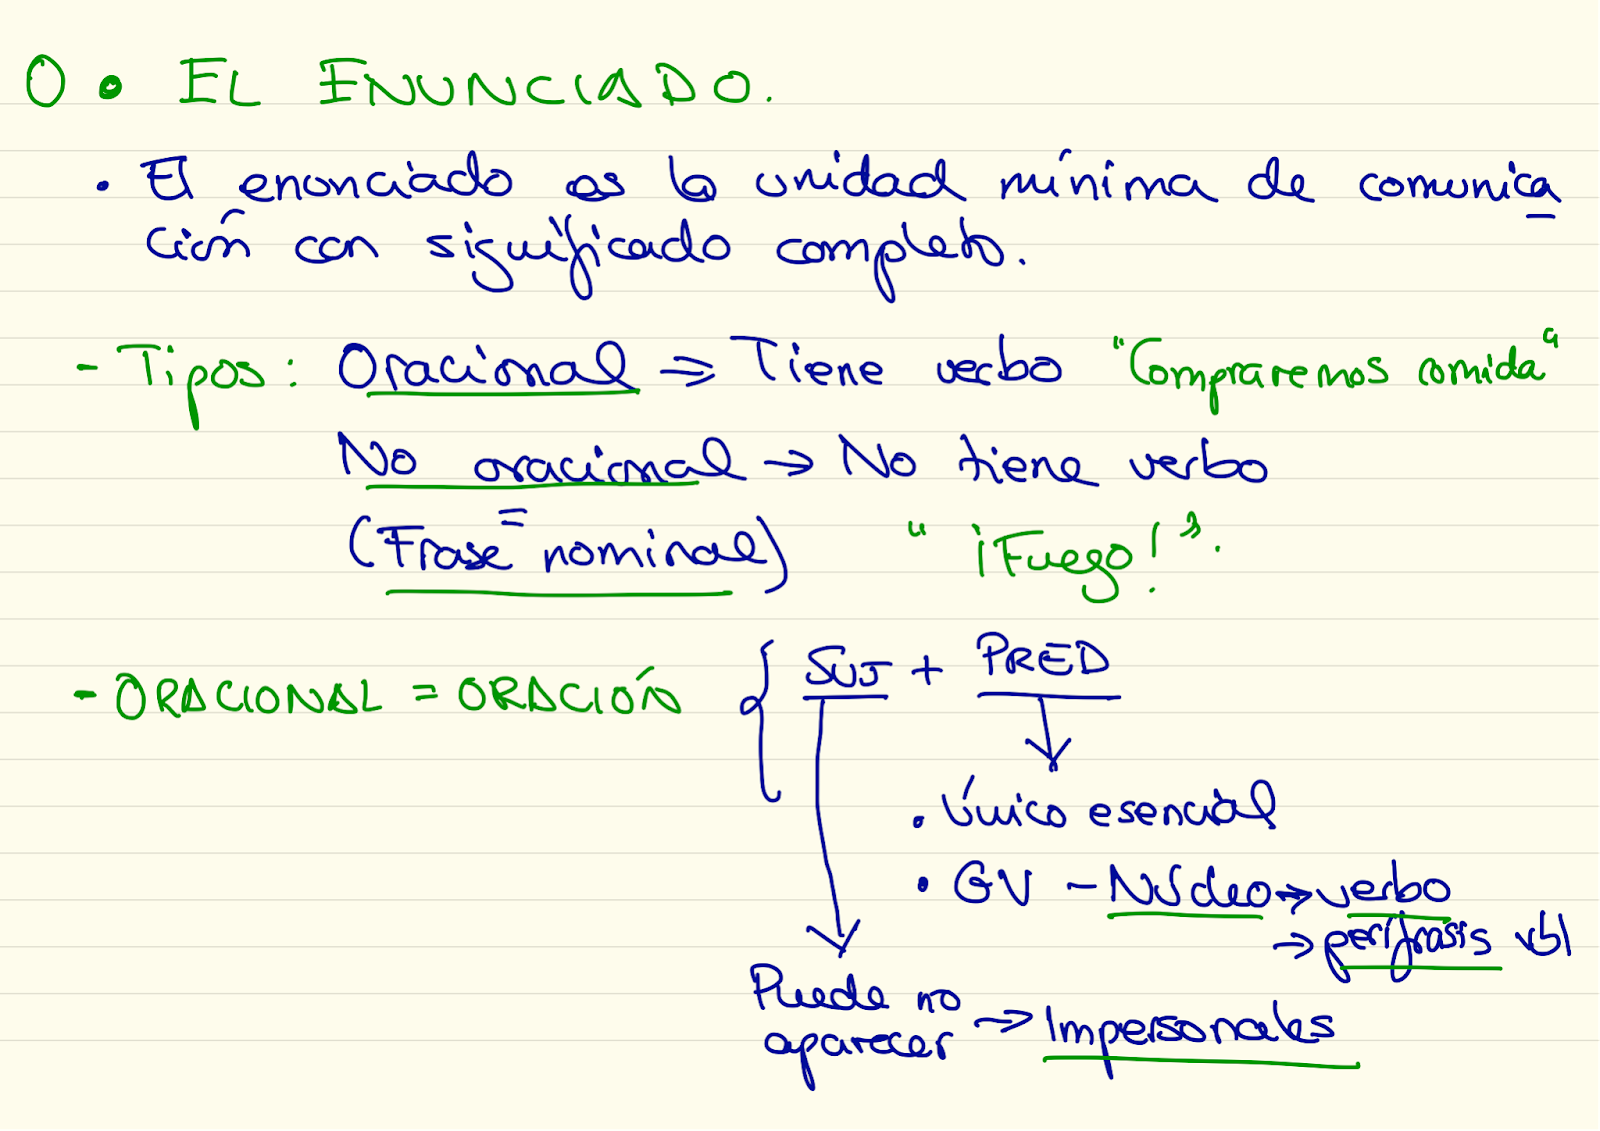 0 • EL ENUNCIADO.
• El enunciado es la unidad mínima de comunica
ción con significado completo.
- Tipos: Oracional => Tiene verbo "Compraremos comida"
No oracional → No tiene verbo
=
(Frase nominal) "¡Fuego!".
- ORACIONAL = ORACIÓN { SUJ + PRED
• Único esencial
• GV - Núcleo → verbo
→ perífrasis vbl
Puede no
aparecer → Impersonales